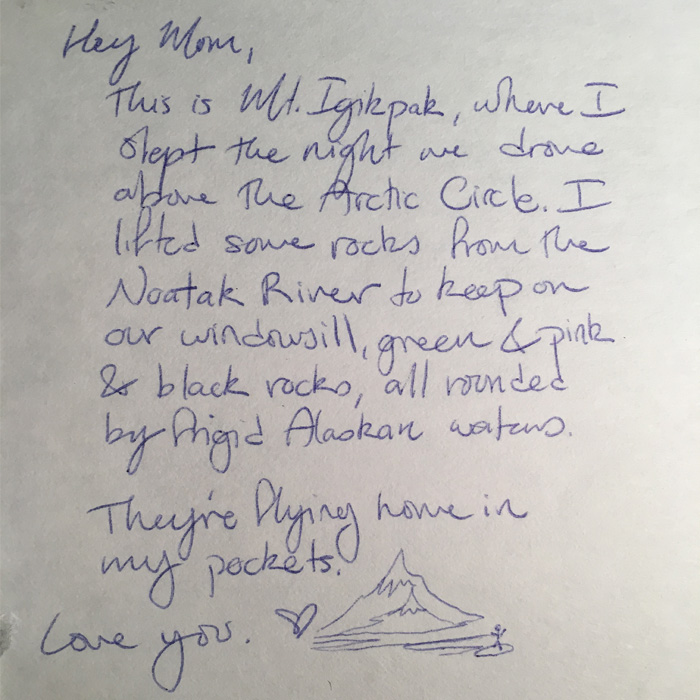 Hey Mom,
This is Mt. Igikpak, where I
slept the night we drove
above the Arctic Circle. I
lifted some rocks from the
Noatak River to keep on
our windowsill, green & pink
& black rocks, all rounded
by frigid Alaskan waters.
They're flying home in
my pockets.
Love you.